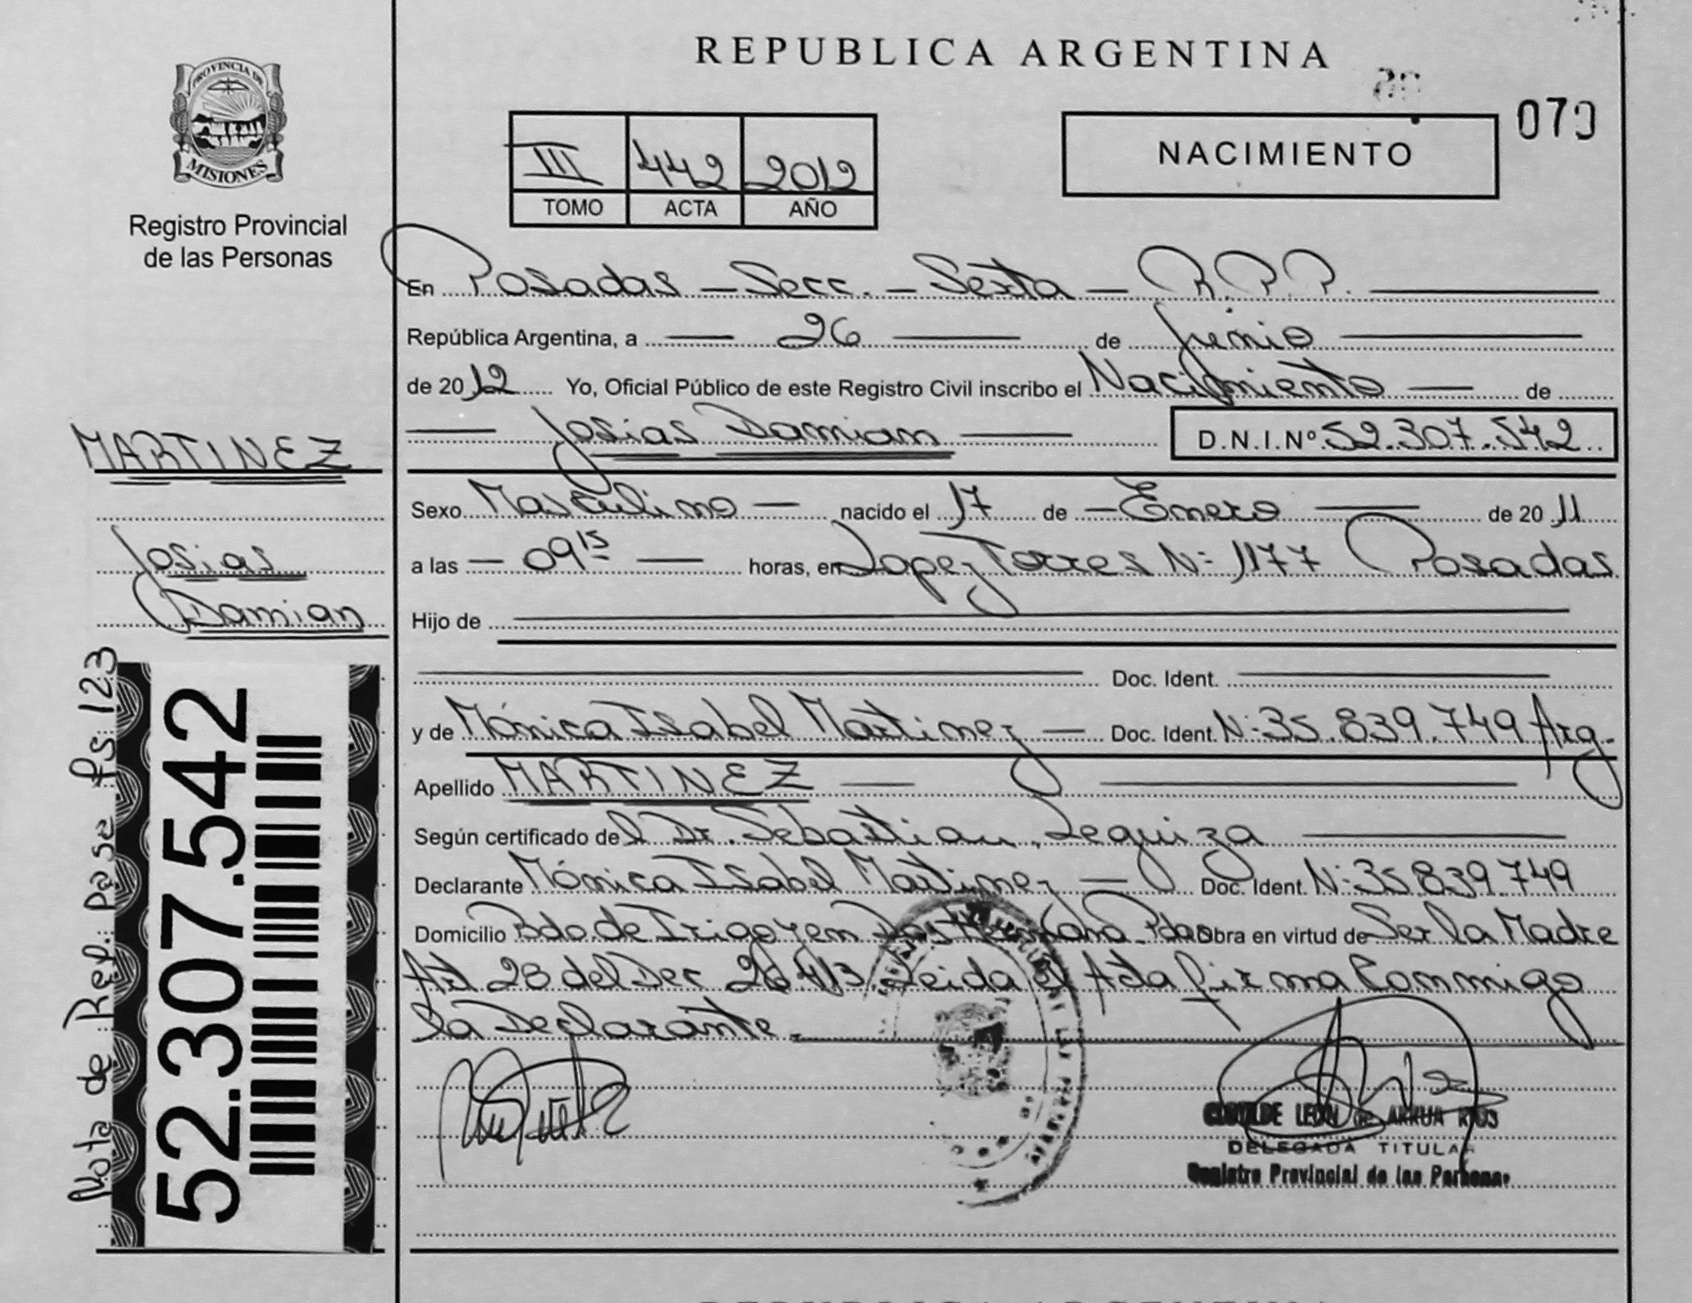 REPUBLICA ARGENTINA
PROVINCIA DE
MISIONES
Registro Provincial
de las Personas
III 442 2012
TOMO ACTA AÑO
NACIMIENTO
070
En Posadas - Secc. - Sexta - R.P.P.
República Argentina, a 26 de Junio
de 2012 Yo, Oficial Público de este Registro Civil inscribo el Nacimiento de
Josias Damian D.N.I.Nº 52.307.542
MARTINEZ
Josias
Damian
Sexo Masculino nacido el 17 de Enero de 2011
a las 09 15 horas, en Lopez Torres N: 1177 Posadas
Hijo de
Doc. Ident.
y de Mónica Isabel Martinez Doc. Ident. N: 35.839.749 Arg.
Apellido MARTINEZ
Según certificado del Dr. Sebastian Leguiza
Declarante Mónica Isabel Martinez Doc. Ident. N: 35839749
Domicilio Bdo. de Irigoyen Pdas Obra en virtud de Ser la Madre
Art 28 del Dec Leida el Acta firma Conmigo
la Declarante.
LEON de ARRUA RIOS
DELEGADA TITULAR
Registro Provincial de las Personas
Nota de Ref.: pase fs: 123
52.307.542